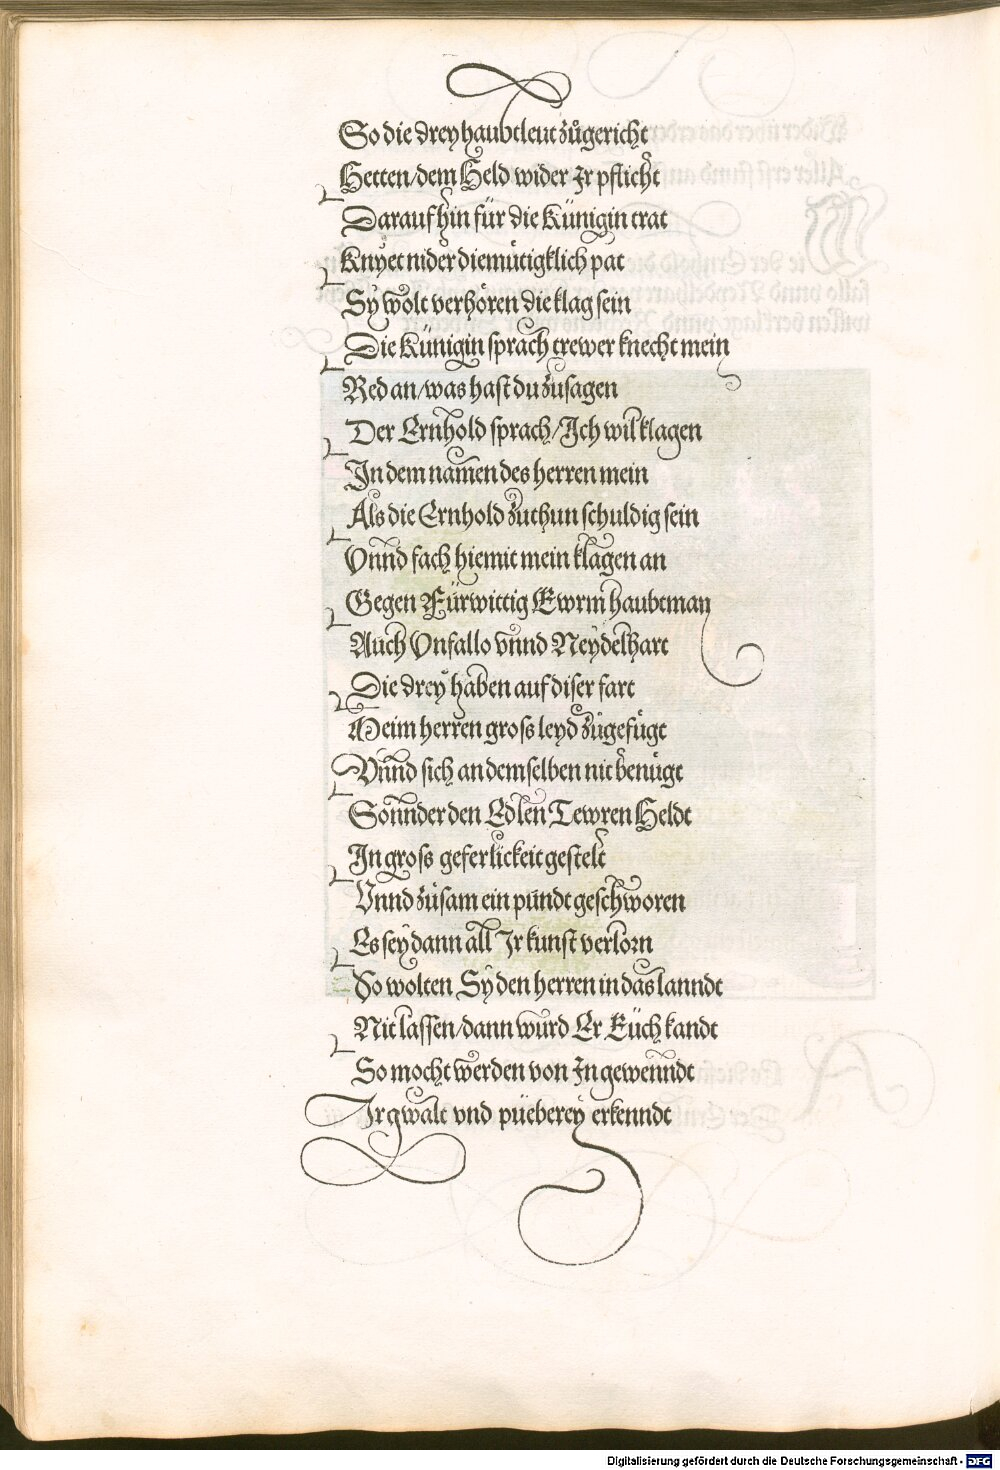 So die drey haubtleut zůgericht
Hetten/dem Held wider Jr pflicht
Darauf hin für die Künigin trat
Knyet nider diemütigklich pat
Sy wolt verhören die klag sein
Die Künigin sprach trewer knecht mein
Red an/was hast du zusagen
Der Ernhold sprach/Ich wil klagen
In dem namen des herren mein
Als die Ernhold zuthun schuldig sein
Vnnd fach hiemit mein klagen an
Gegen Fürwittig Ewrm haubtman
Auch Vnfallo vnnd Neydelhart
Die drey haben auf diser fart
Meim herren gross leyd zůgefügt
Vnnd sich an demselben nit benügt
Sonnder den Edlen Tewren Heldt
In gross geferlickeit gestelt
Vnnd zůsam ein pündt geschworen
Es sey dann all Jr kunst verlorn
So wolten Sy den herren in das lanndt
Nit lassen/dann wurd Er Eüch kandt
So mocht werden von In gewenndt
Jr gwalt vnd püeberey erkenndt
Digitalisierung gefördert durch die Deutsche Forschungsgemeinschaft - DFG